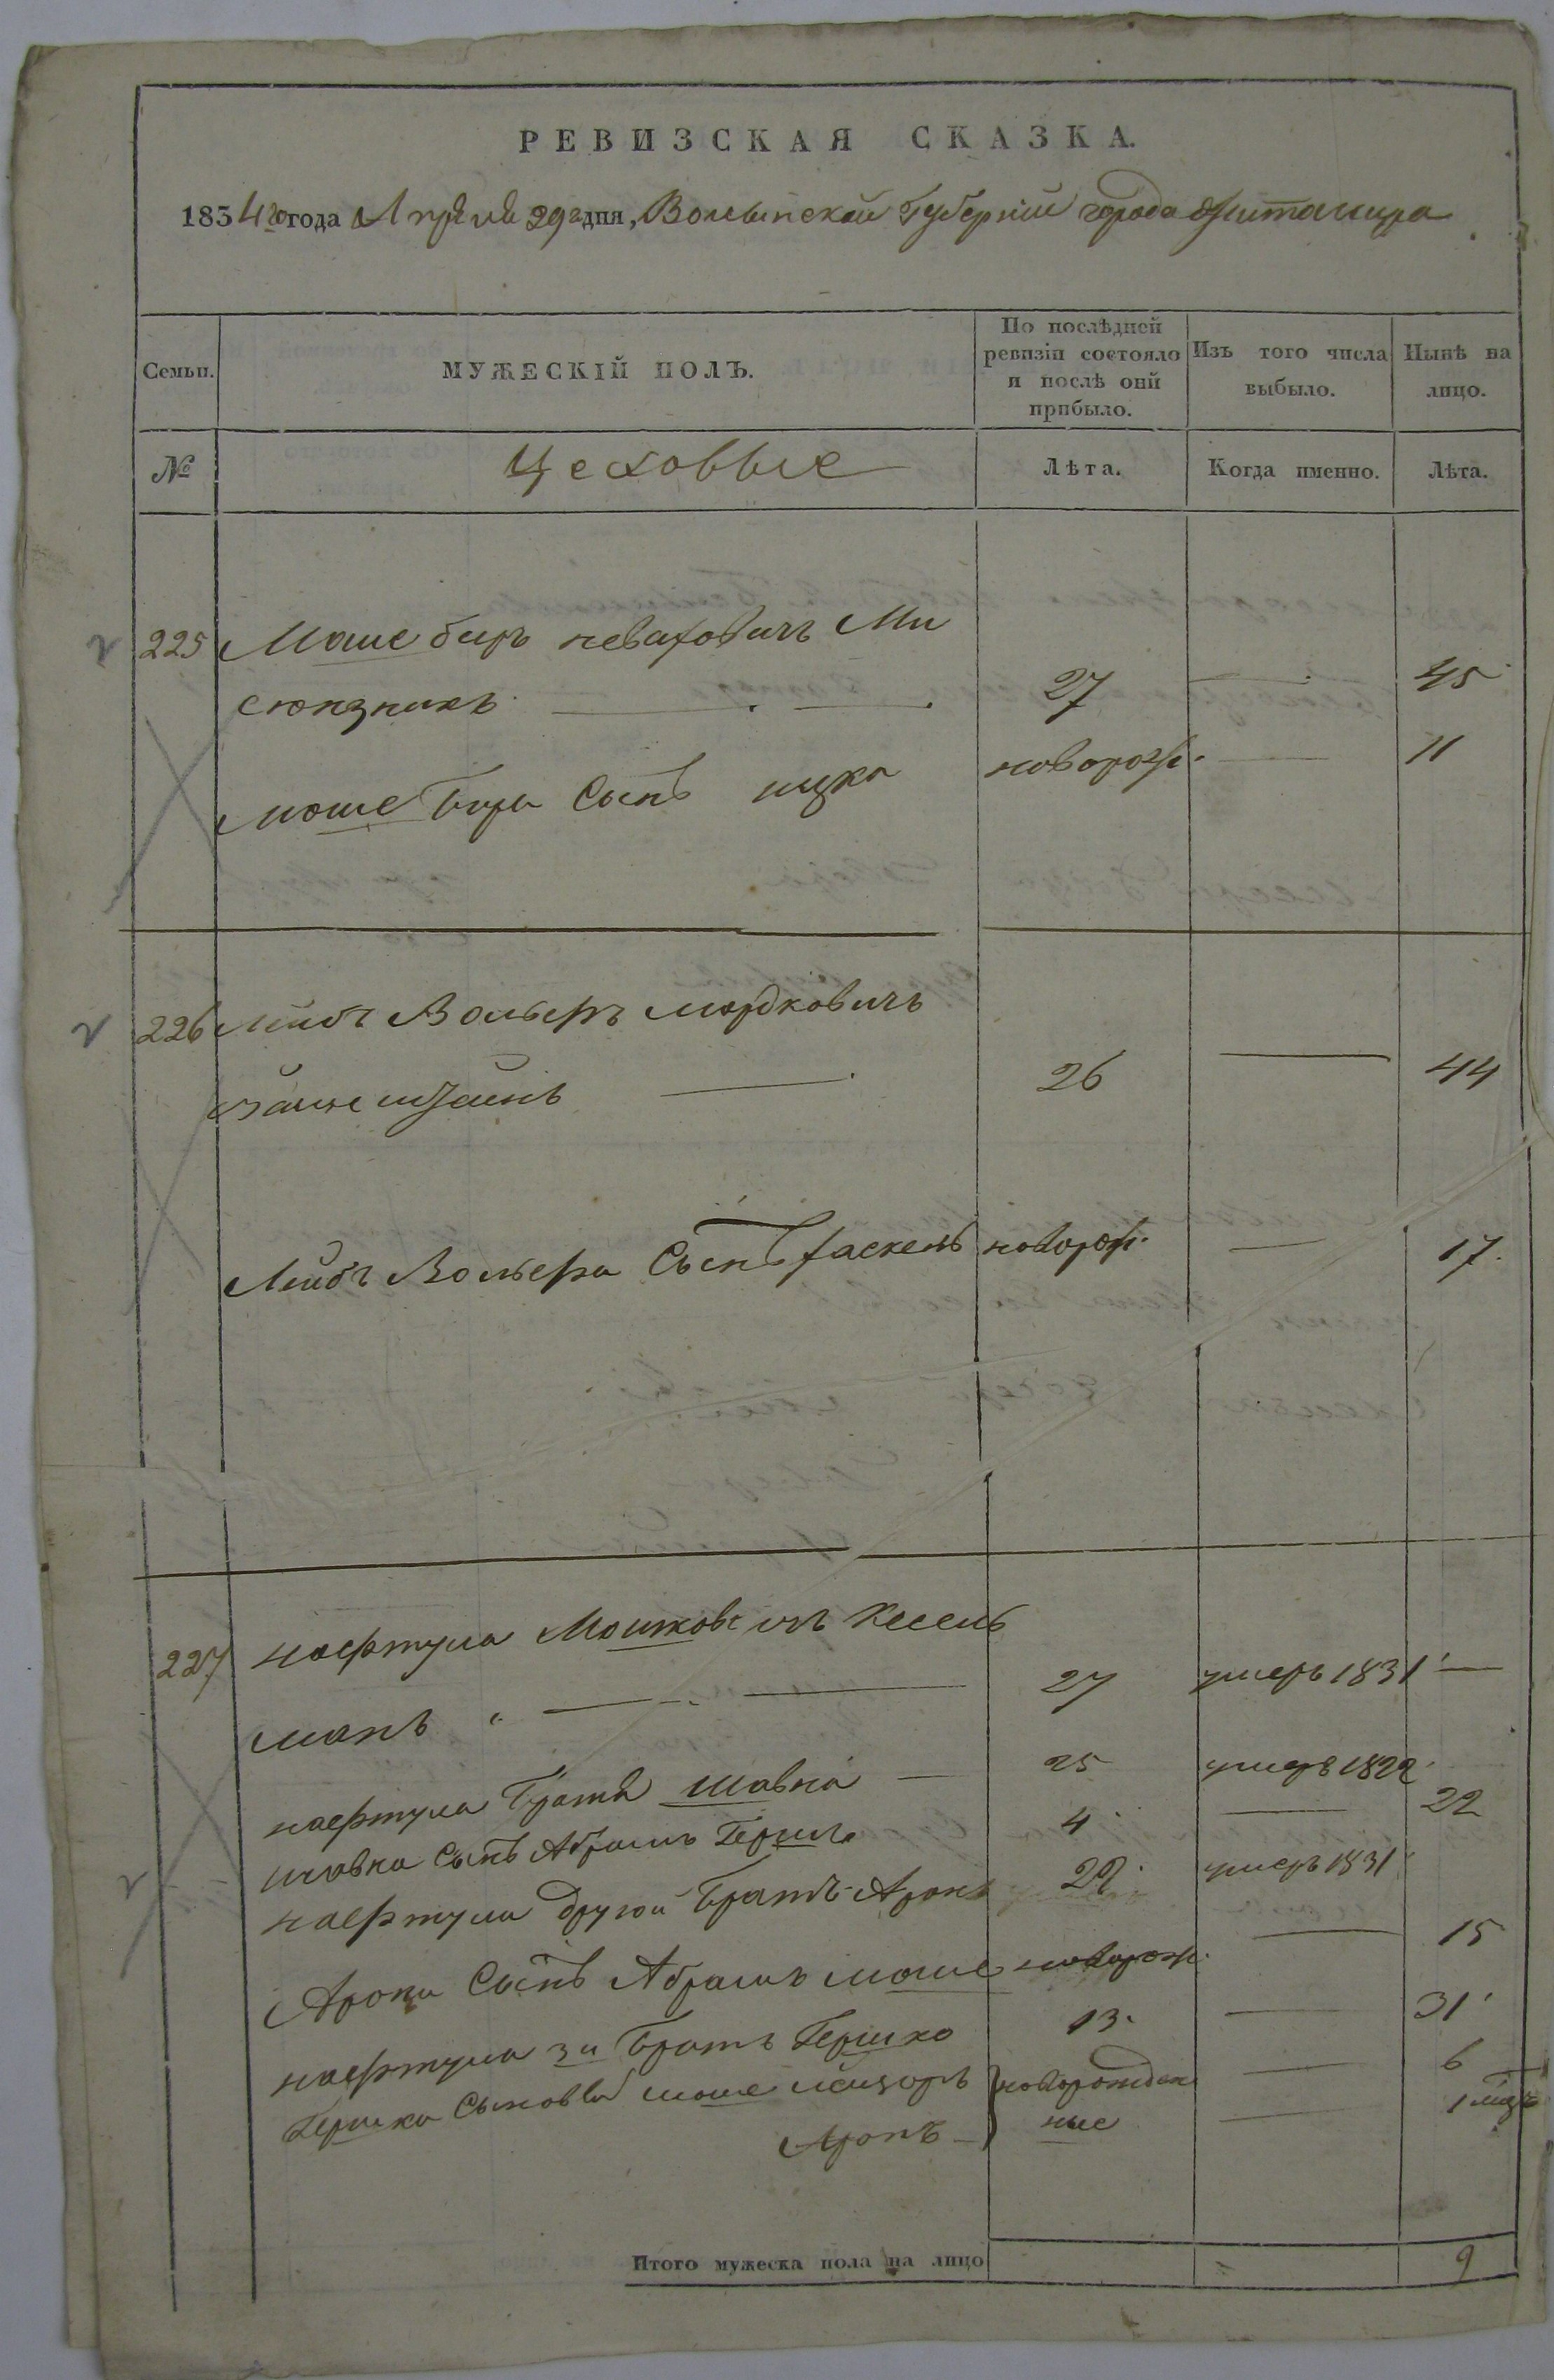 РЕВИЗСКАЯ СКАЗКА.
1834го года Апреля 29го дня, Волынской Губерніи города Житомира
Семьи. МУЖЕСКІЙ ПОЛЪ. По послѣдней ревизіи состояло и послѣ оній прибыло. Изъ того числа выбыло. Нынѣ на лицо.
№ Цеховые Лѣта. Когда именно. Лѣта.
225 Моше биръ неваховичъ Ми
сюкзникъ 27 — 45
Моше Бира Сынъ ицко новорож. — 11
226 Лейбъ Вольеръ мордковичъ
26 — 44
Лейбъ Вольера Сынъ хаскель новорож. — 17.
227 нафтула Мошковичъ Кесель
манъ 27 умеръ 1831 —
нафтула Братъ шавка — 25 умеръ 1822
шавка Сынъ Абрамъ Гершъ 4 — 22
нафтула другой Братъ Аронъ 22 умеръ 1831
Арона Сынъ Абрамъ моше новорож. — 15
нафтула 3й Братъ Гершко 13. — 31
Гершка Сыновья моше новорожден — 6
Аронъ ные — 1
Итого мужеска пола на лицо 9